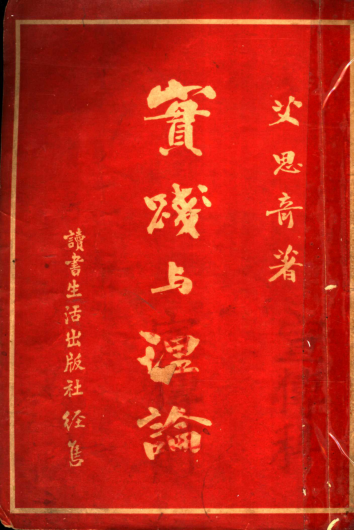 艾思奇著
實踐与理論
讀書生活出版社経售